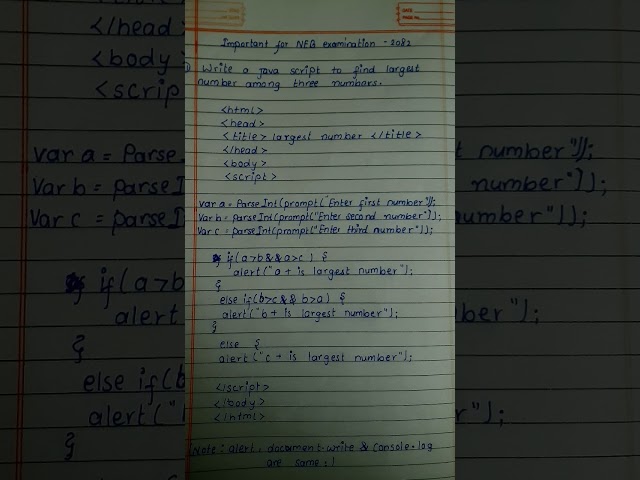 Important for NEB examination - 2082
Write a java script to find largest
number among three numbers.
<html>
<head>
<title> largest number </title>
</head>
<body>
<script>
var a = ParseInt(prompt("Enter first number"));
Var b = parseInt(prompt("Enter second number"));
Var c = parseInt(prompt("Enter third number"));
if(a>b && a>c) {
alert("a + is largest number");
}
else if(b>c && b>a) {
alert("b + is largest number");
}
else {
alert("c + is largest number");
</script>
</body>
</html>
Note: alert, document.write & console.log
are same.